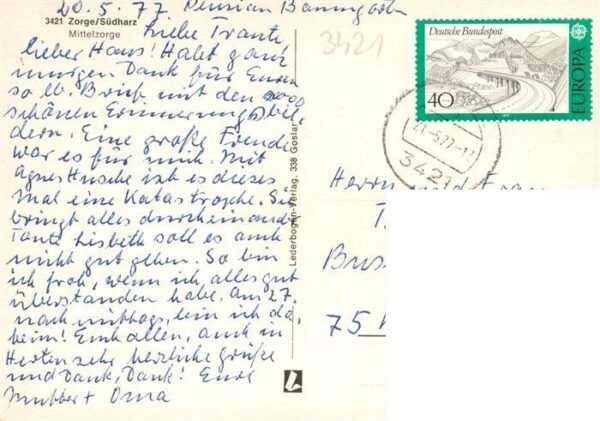 20.5.77 Pension Baumgarten
3421 Zorge/Südharz
Mittelzorge
Liebe Traute
lieber Hans! Habt ganz
innigen Dank für Euren
so lb. Brief mit den sooo
schönen Erinnerungsbil-
dern. Eine große Freude
war es für mich. Mit
Agnes Husche ist es dieses
mal eine Katastrophe. Sie
bringt alles durcheinander
Tante Lisbeth soll es auch
nicht gut gehen. So bin
ich froh, wenn ich alles gut
überstanden habe. Am 27.
nachmittags, bin ich da,
heim! Euch allen, auch in
Herten sehr herzliche Grüße
und Dank, Dank! Eure
Mutter + Oma
Lederbogen-Verlag, 338 Goslar
3421
Deutsche Bundespost
40
EUROPA
21.-5.77-12
3421
Herrn und Frau
75